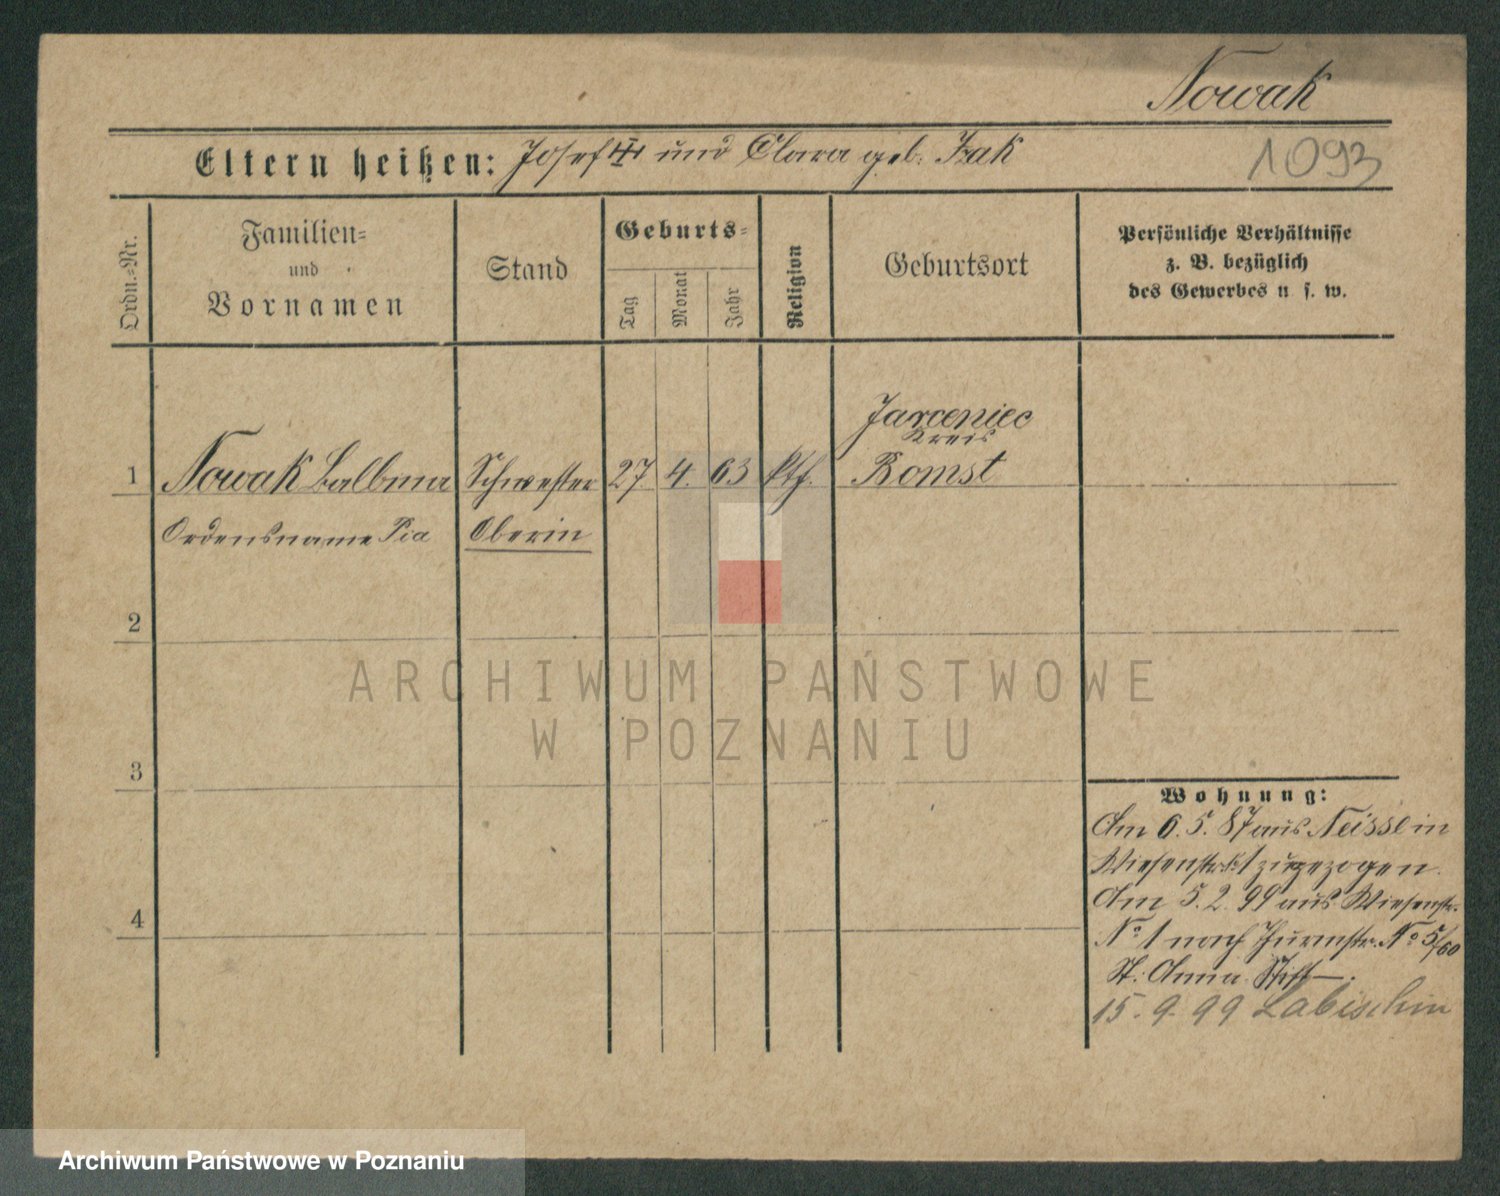 Nowak
Eltern heißen: Josef und Clara geb. Izak
1093
Ordn.-Nr.
Familien-
und
Vornamen
Stand
Geburts-
Tag
Monat
Jahr
Religion
Geburtsort
Persönliche Verhältnisse
z. B. bezüglich
des Gewerbes u. s. w.
Jarceniec
Kreis
1 Nowak Balbina Schwester 27. 4. 63 kth. Bomst
Ordensname Pia Oberin
2
ARCHIWUM PAŃSTWOWE
W POZNANIU
3
Wohnung:
Am 6. 5. 87 aus Neisse in
Wiesenstr. 1 zugezogen.
Am 5. 2. 99 aus Wiesenstr.
4
No. 1 nach Thurmstr. No 5/60
St. Anna Stift.
15. 9. 99 Labischin
Archiwum Państwowe w Poznaniu